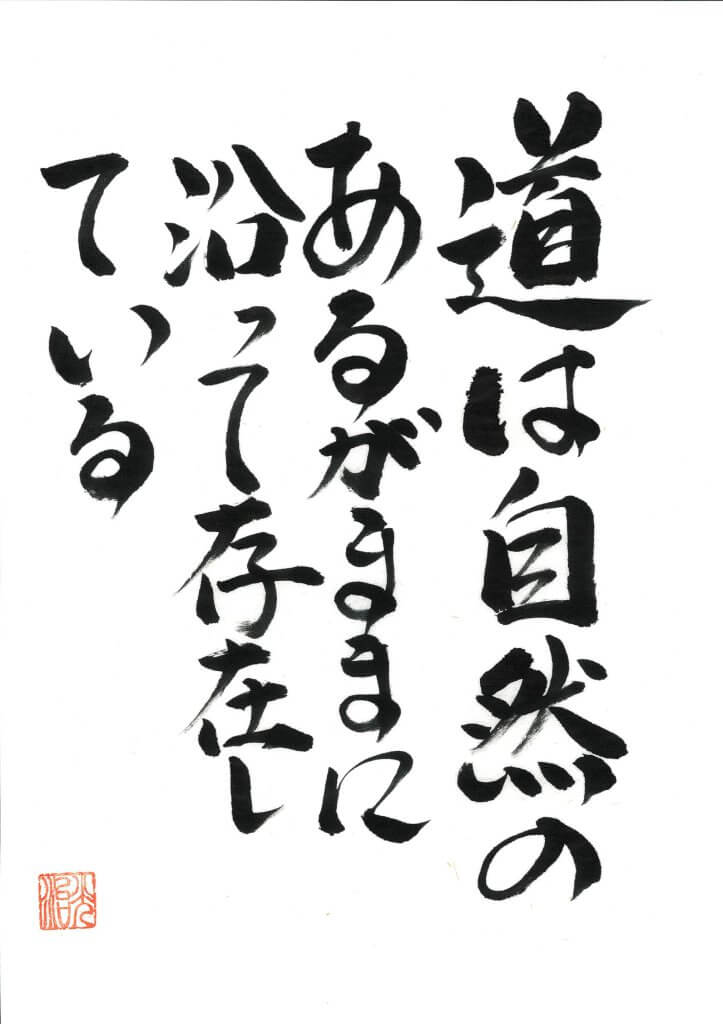 道は自然の
あるがままに
沿って存在し
ている